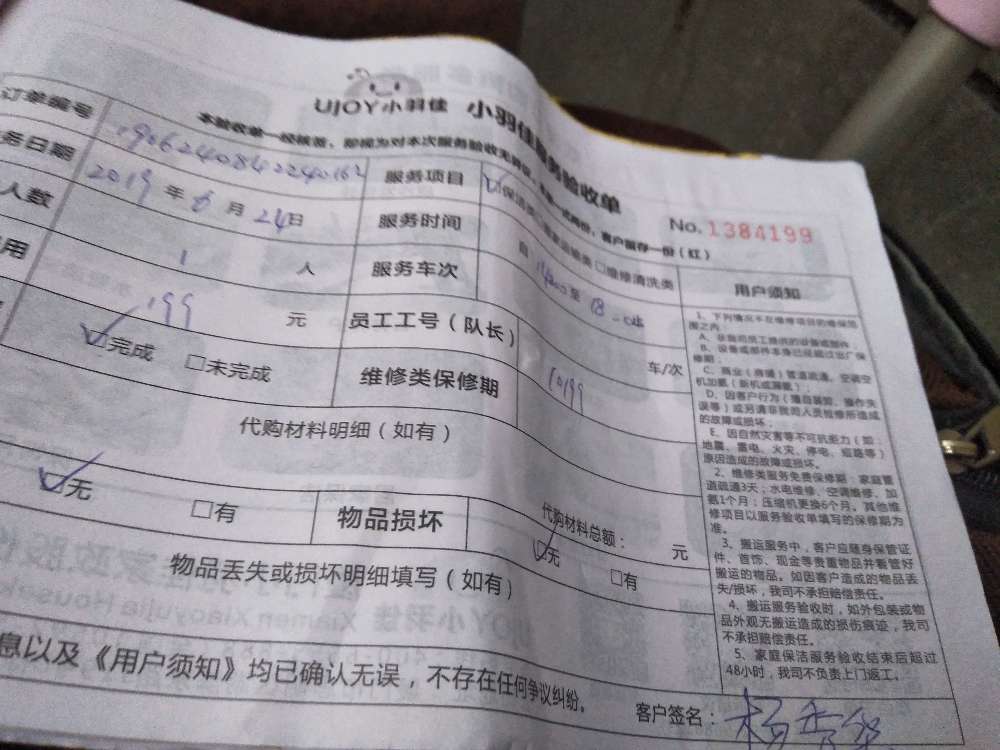 UJOY小羽佳 小羽佳服务验收单
本验收单一经核签，即视为对本次服务验收无异议，客户留存一份（红）
No. 1384199
订单编号 服务项目 保洁类 □维修清洗类
务日期 2019 年 6 月 24 日 服务时间 自 至
人数 1 人 服务车次 车/次
用 199 元 员工工号（队长） 10199
完成 □未完成 维修类保修期
代购材料明细（如有）
代购材料总额： 元
无 □有 物品损坏 无 □有
物品丢失或损坏明细填写（如有）
息以及《用户须知》均已确认无误，不存在任何争议纠纷。
客户签名：
用户须知
1、下列情况不在维修项目的维保范围之内：
A、非我司员工提供的设备或部件；
B、设备或部件本身已经超过出厂保修期；
C、商业（商铺）管道疏通、空调空机加氨（新机或漏氨）；
D、因客户行为（擅自装卸、操作失误等）或另请非我司人员检修所造成的故障或损坏；
E、因自然灾害等不可抗能力（如：地震、雷电、火灾、停电、短路等）原因造成的故障或损坏。
2、维修类服务免费保修期：家庭管道疏通3天；水电维修、空调维修、加氨1个月；压缩机更换6个月。其他维修项目以服务验收单填写的保修期为准。
3、搬运服务中，客户应随身保管证件、首饰、现金等贵重物品并看管好搬运的物品。如因客户造成的物品丢失/损坏，我司不承担赔偿责任。
4、搬运服务验收时，如外包装或物品外观无搬运造成的损伤痕迹，我司不承担赔偿责任。
5、家庭保洁服务验收结束后超过48小时，我司不负责上门返工。